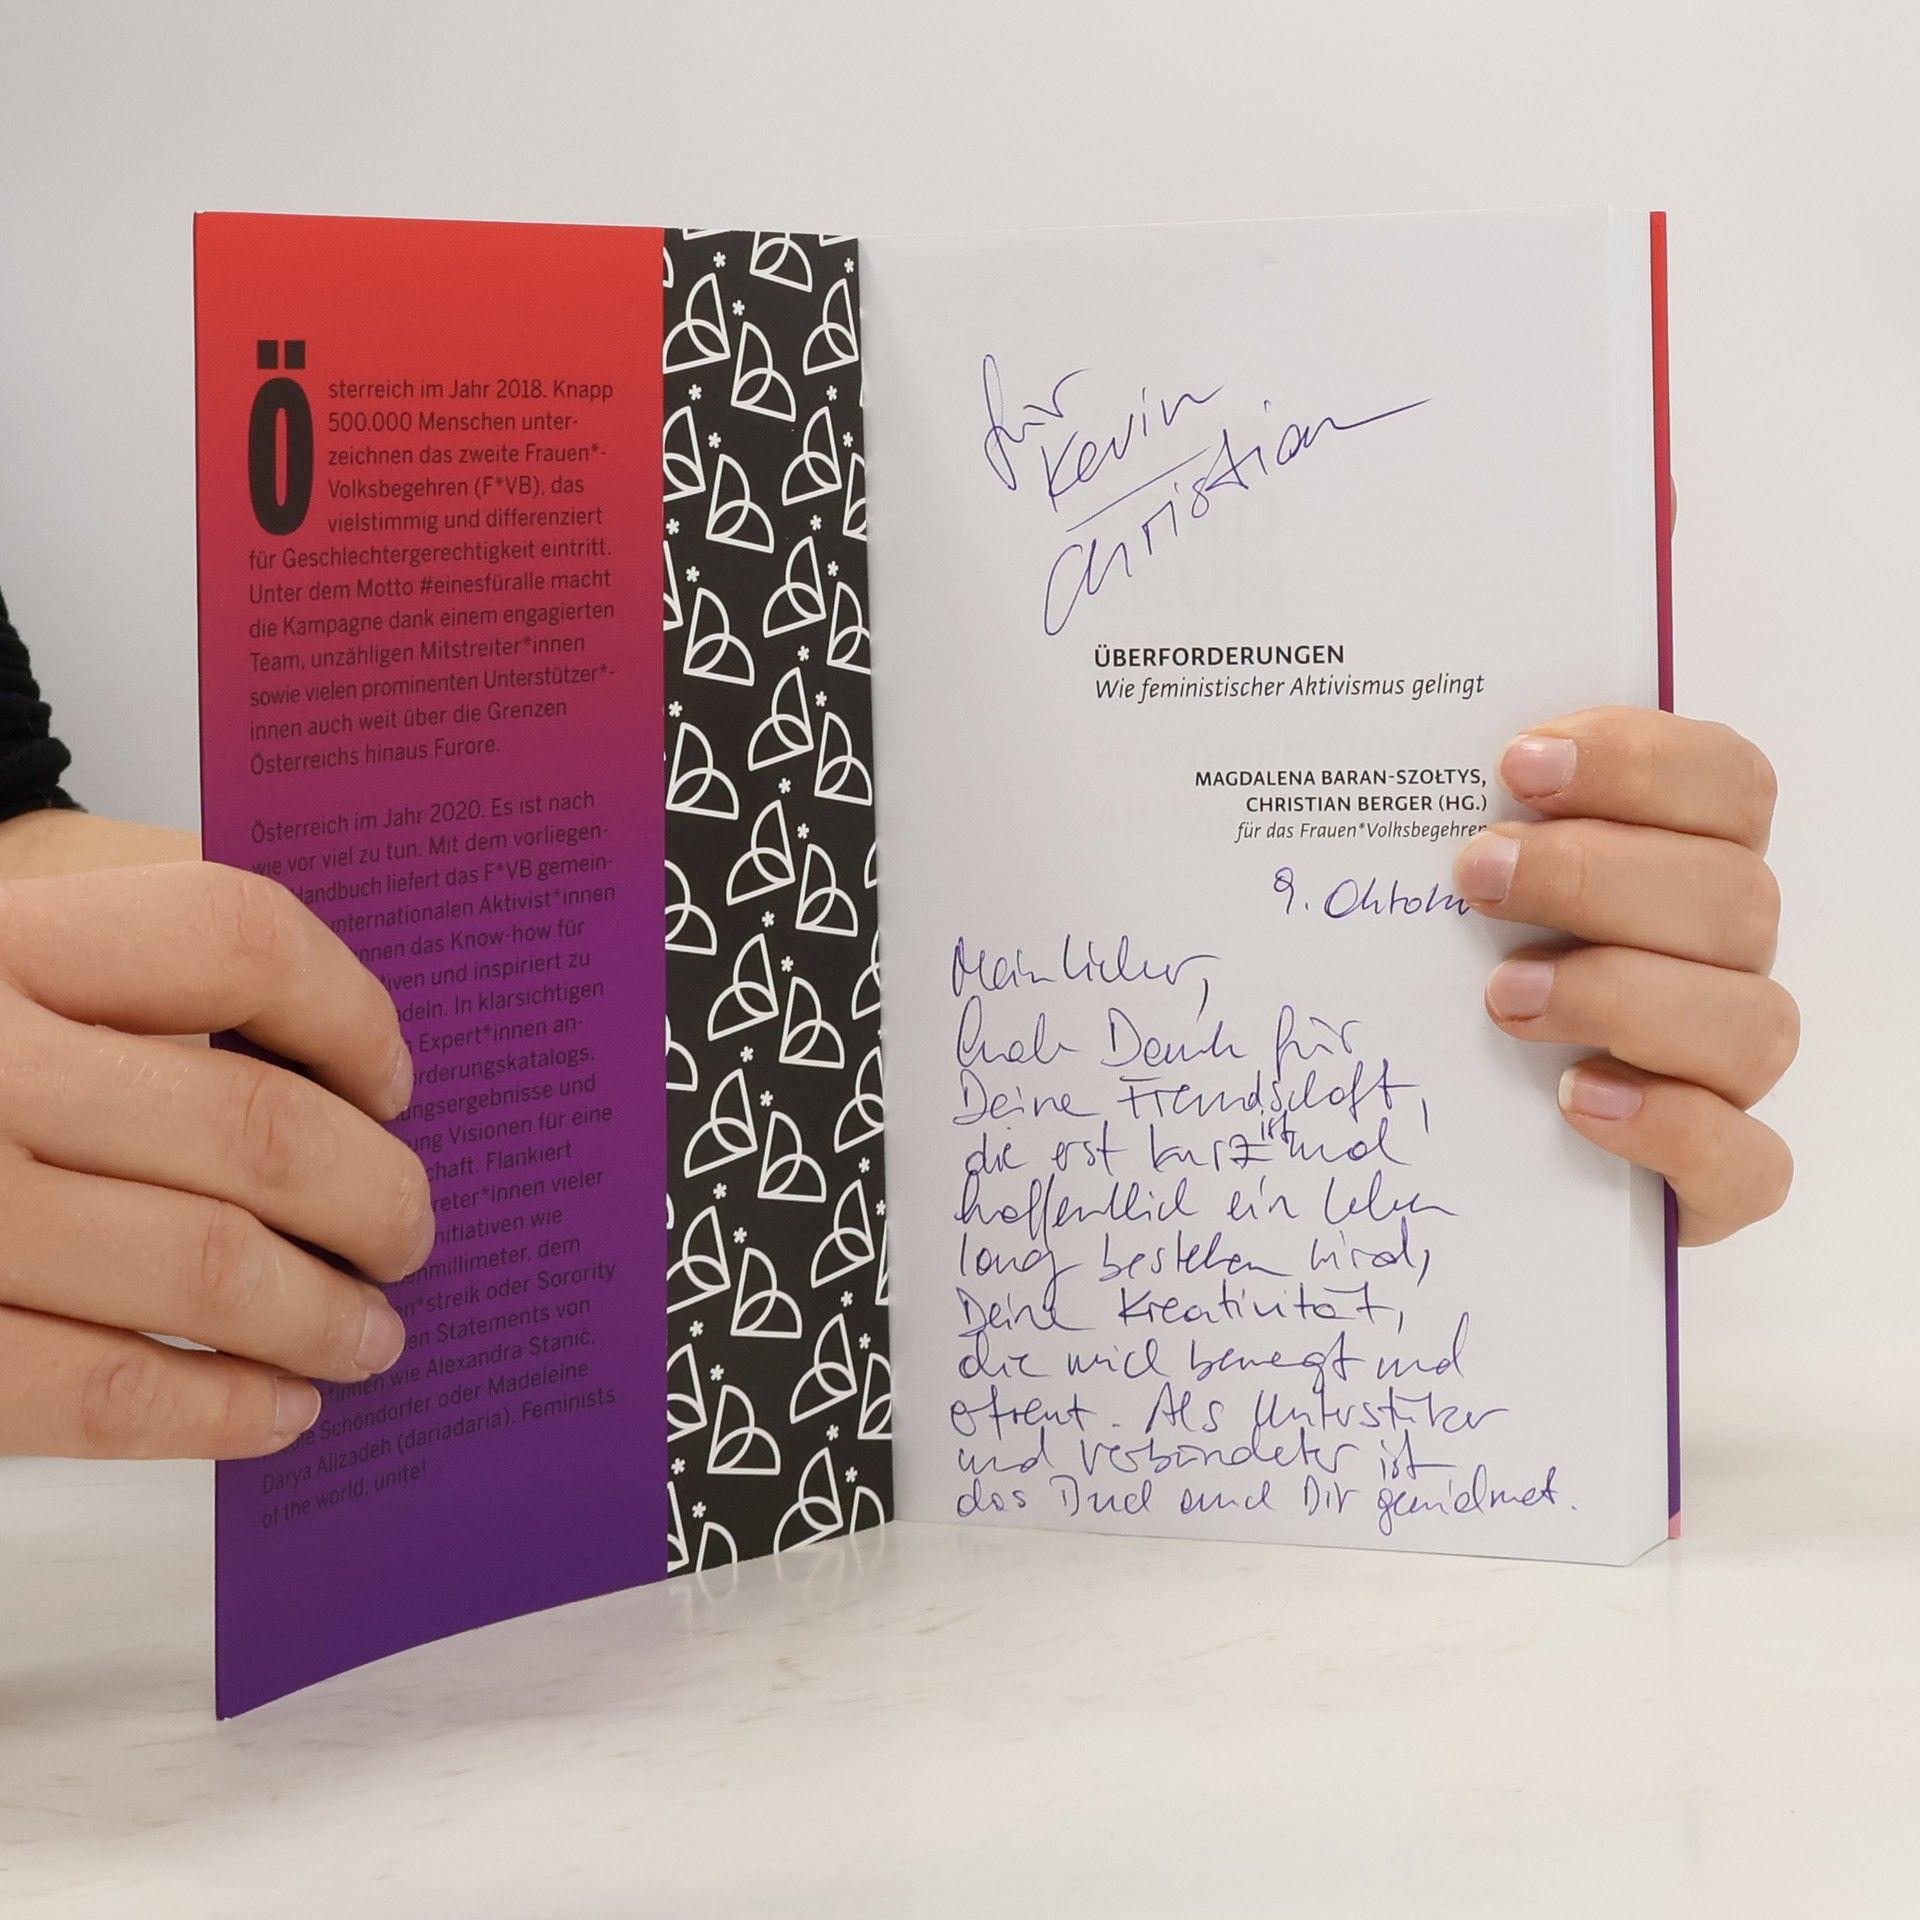 Österreich im Jahr 2018. Knapp
500.000 Menschen unter-
zeichnen das zweite Frauen*-
Volksbegehren (F*VB), das
vielstimmig und differenziert
für Geschlechtergerechtigkeit eintritt.
Unter dem Motto #einesfüralle macht
die Kampagne dank einem engagierten
Team, unzähligen Mitstreiter*innen
sowie vielen prominenten Unterstützer*-
innen auch weit über die Grenzen
Österreichs hinaus Furore.
Österreich im Jahr 2020. Es ist nach
wie vor viel zu tun. Mit dem vorliegen-
Handbuch liefert das F*VB gemein-
internationalen Aktivist*innen
innen das Know-how für
tiven und inspiriert zu
deln. In klarsichtigen
Expert*innen an-
orderungskatalogs,
ungsergebnisse und
ung Visionen für eine
chaft. Flankiert
reter*innen vieler
nitiativen wie
enmillimeter, dem
en*streik oder Sorority
en Statements von
*innen wie Alexandra Stanić,
ole Schöndorfer oder Madeleine
Darya Alizadeh (dariadaria). Feminists
of the world, unite!
für
Kevin
Christian
ÜBERFORDERUNGEN
Wie feministischer Aktivismus gelingt
MAGDALENA BARAN-SZOŁTYS,
CHRISTIAN BERGER (HG.)
für das Frauen*Volksbegehren
9. Oktober
Mein Lieber,
hab Dank für
Deine Freundschaft,
die erst kurz ist und
hoffentlich ein Leben
lang bestehen wird,
Deine Kreativität,
die mich bewegt und
erfreut. Als Unterstützer
und Verbündeter ist
das Buch auch Dir gewidmet.